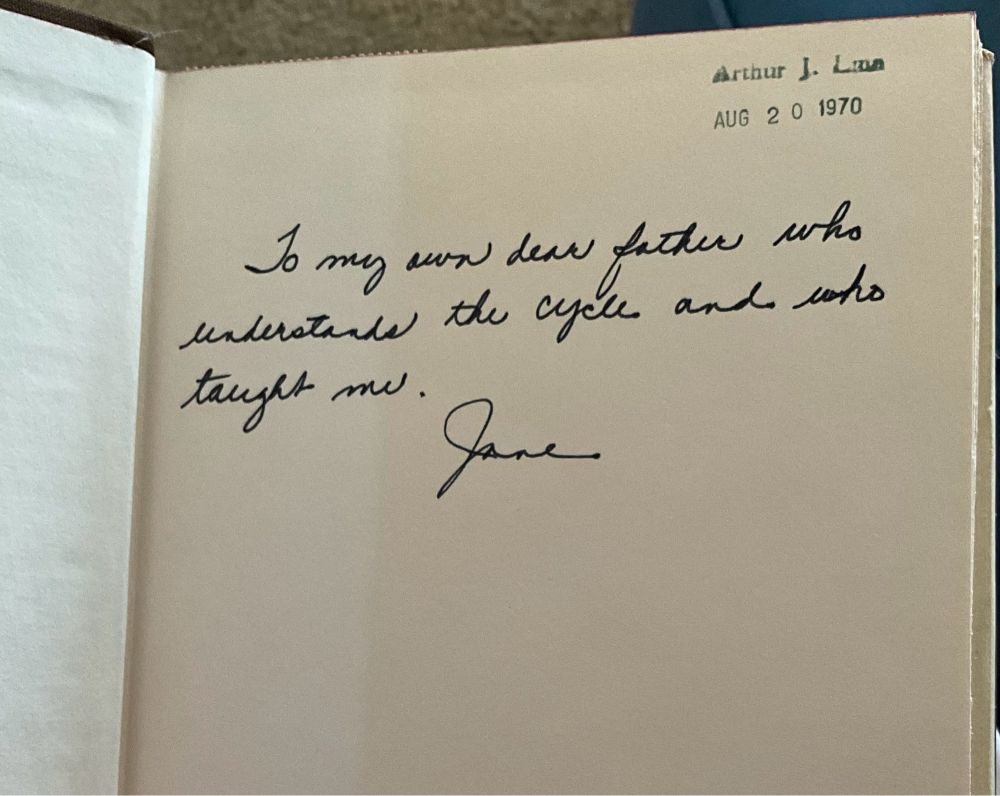 Arthur J.
AUG 20 1970
To my own dear father who
understands the cycle and who
taught me.
Jane